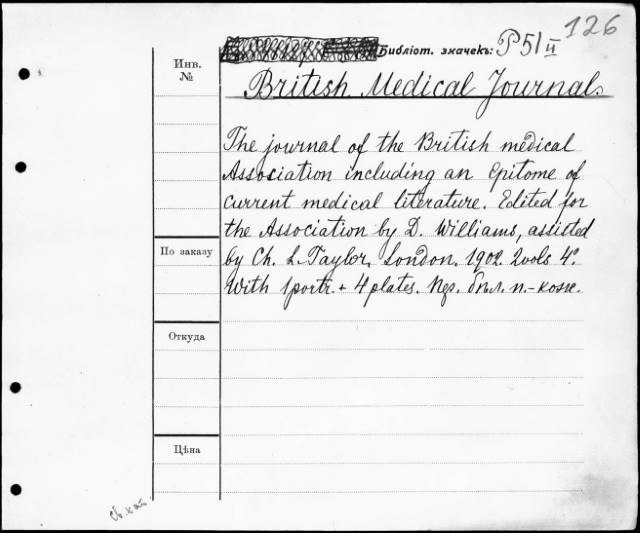 126
Библіот. значекъ: P51 II
Инв.
№
British Medical Journal.
The journal of the British medical
Association including an Epitome of
current medical literature. Edited for
the Association by D. Williams, assisted
by Ch. L. Taylor, London. 1902. 2vols 4°.
With 1portr. + 4 plates. Пер. бѣл. п.-кож.
По заказу
Откуда
Цѣна